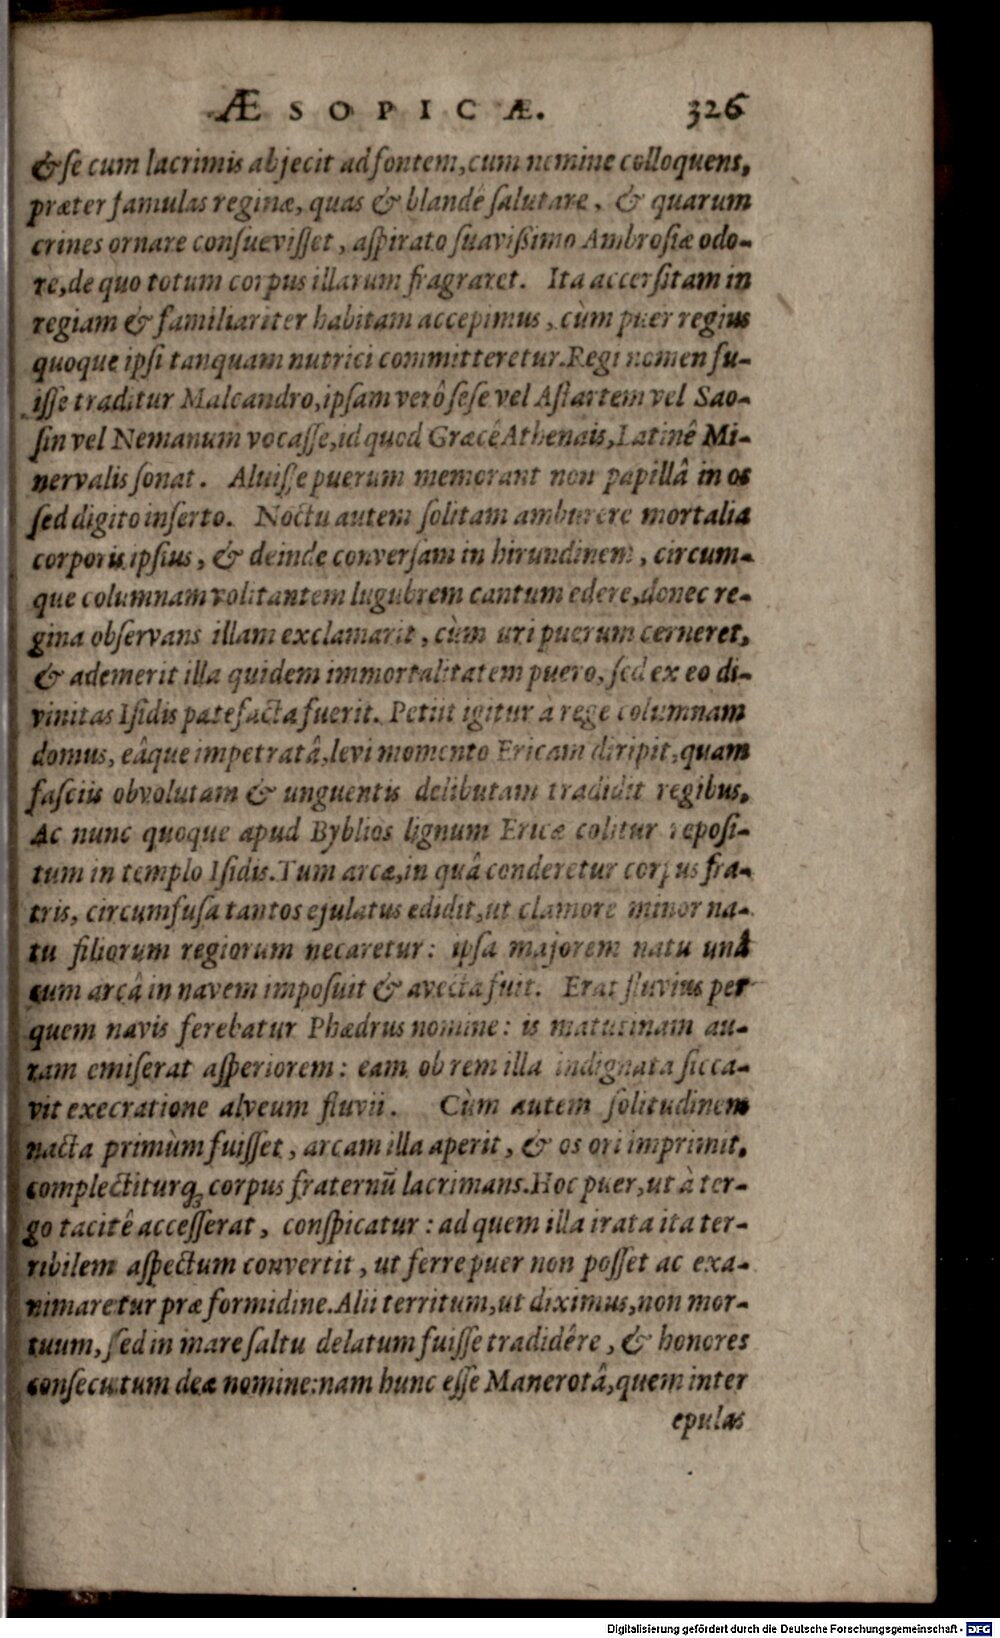 ÆSOPICÆ. 326
& se cum lacrimis abjecit ad fontem, cum nemine colloquens,
præter famulas reginæ, quas & blandè salutare, & quarum
crines ornare consuevisset, aspirato suavissimo Ambrosiæ odo-
re, de quo totum corpus illarum fragraret. Ita accersitam in
regiam & familiariter habitam accepimus, cùm puer regius
quoque ipsi tanquam nutrici committeretur. Regi nomen fu-
isse traditur Malcandro, ipsam verò sese vel Astartem vel Sao-
sin vel Nemanum vocasse, id quod Græcê Athenais, Latinê Mi-
nervalis sonat. Aluisse puerum memorant non papillâ in os
sed digito inserto. Noctu autem solitam amburere mortalia
corporis ipsius, & deinde conversam in hirundinem, circum-
que columnam volitantem lugubrem cantum edere, donec re-
gina observans illam exclamarit, cùm uri puerum cerneret,
& ademerit illa quidem immortalitatem puero, sed ex eo di-
vinitas Isidis patefacta fuerit. Petiit igitur à rege columnam
domus, eâque impetratâ, levi momento Ericam diripit, quam
fasciis obvolutam & unguentis delibutam tradidit regibus.
Ac nunc quoque apud Byblios lignum Ericæ colitur reposi-
tum in templo Isidis. Tum arcæ, in quâ conderetur corpus fra-
tris, circumfusa tantos ejulatus edidit, ut clamore minor na-
tu filiorum regiorum necaretur: ipsa majorem natu unà
cum arcâ in navem imposuit & avecta fuit. Erat fluvius per
quem navis ferebatur Phædrus nomine: is matutinam au-
ram emiserat asperiorem: eam ob rem illa indignata sicca-
vit execratione alveum fluvii. Cùm autem solitudinem
nacta primùm fuisset, arcam illa aperit, & os ori imprimit,
complectiturq; corpus fraternũ lacrimans. Hoc puer, ut à ter-
go tacitê accesserat, conspicatur: ad quem illa irata ita ter-
ribilem aspectum convertit, ut ferre puer non posset ac exa-
nimaretur præ formidine. Alii territum, ut diximus, non mor-
tuum, sed in mare saltu delatum fuisse tradidêre, & honores
consecutum deæ nomine: nam hunc esse Manerotâ, quem inter
epulas
Digitalisierung gefördert durch die Deutsche Forschungsgemeinschaft - DFG